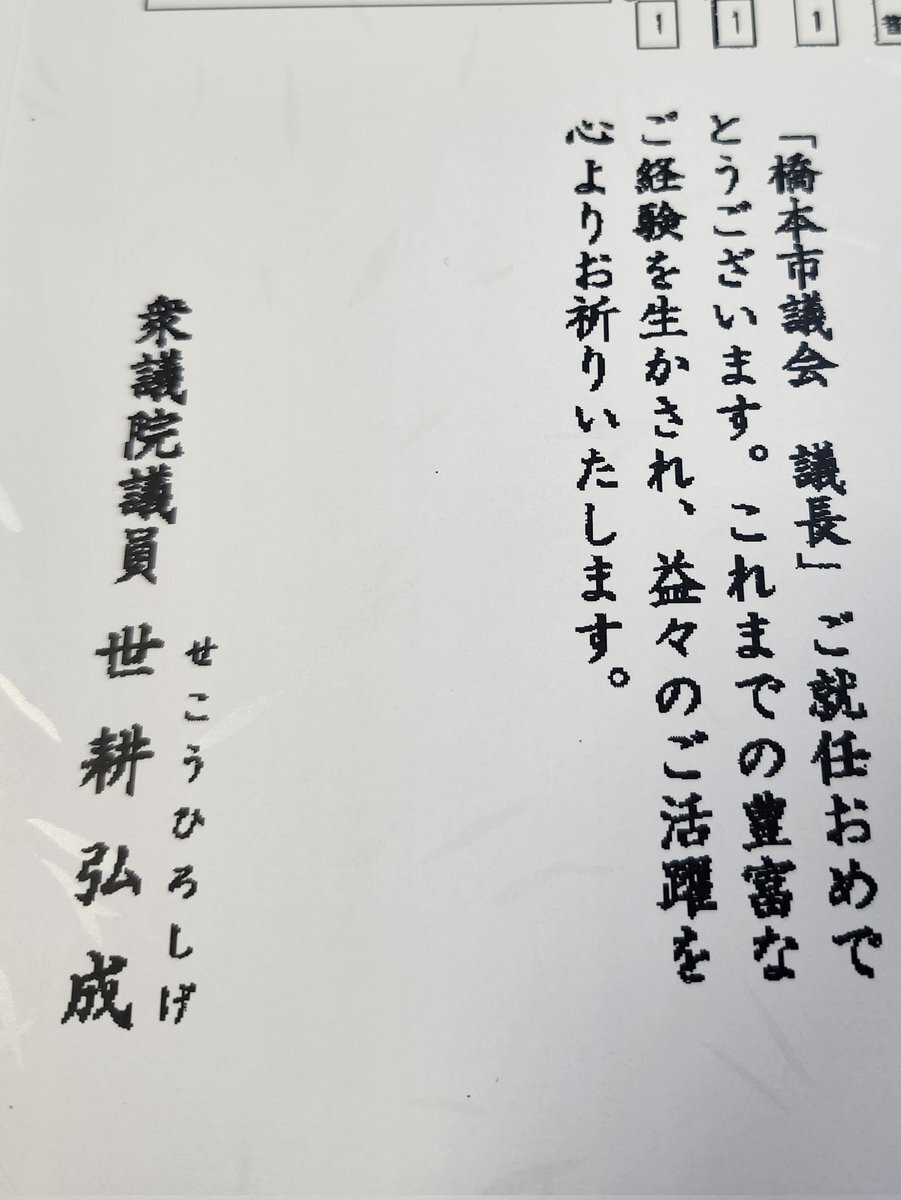 「橋本市議会　議長」ご就任おめで
とうございます。これまでの豊富な
ご経験を生かされ、益々のご活躍を
心よりお祈りいたします。
せこうひろしげ
衆議院議員 世耕弘成
1 1 1